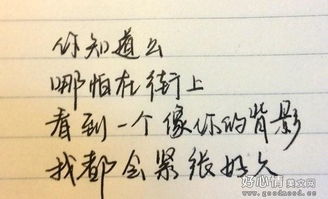 你知道么
哪怕在街上
看到一个像你的背影
我都会紧张好久
好心情美文网
www.goodmood.cn